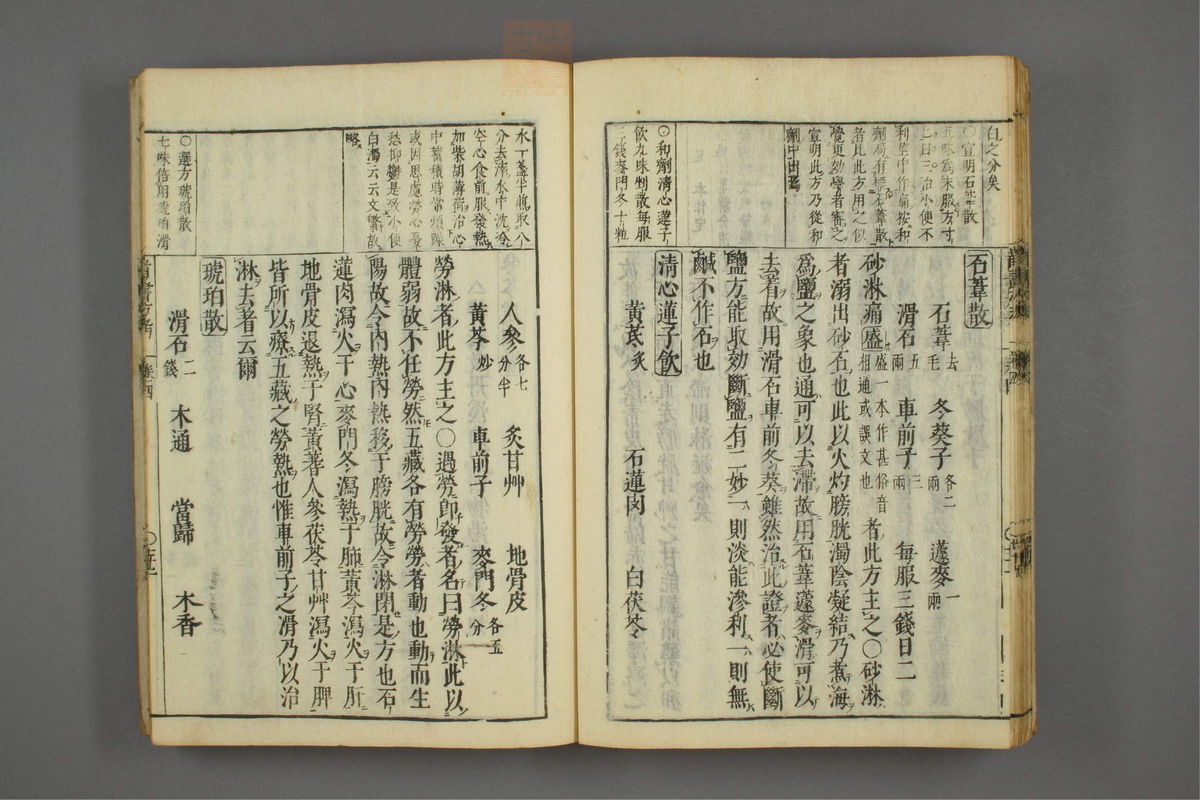 白之分矣
○宣明石葦散
五味為末服方寸
匕日三治小便不
利莖中作痛按和
劑局有石葦散
者比此方用之似
覺更効學者審之
宣明此方乃從和
劑中出焉
○和劑清心蓮子
飲九味剉散每服
三錢麥門冬十粒
石葦散
石葦去毛 冬葵子各二兩 蘧麥一兩
滑石五兩 車前子三兩 每服三錢日二
砂淋痛盛盛一本作甚俗音相通或誤文也者此方主之○砂淋
者溺出砂石也此以火灼膀胱濁陰凝結乃煮海
為鹽之象也通可以去滯故用石葦蘧麥滑可以
去着故用滑石車前冬葵雖然治此證者必使斷
鹽方能取効斷鹽有二妙一則淡能滲利一則無
鹹不作石也
清心蓮子飲
黃芪炙 石蓮肉 白茯苓
水一盞半煎取八
分去滓水中沈冷
空心食前服發熱
加柴胡薄荷治心
中蓄積時常煩躁
或因思慮勞心憂
愁抑鬱是致小便
白濁云云文繁故
略
○選方琥珀散
七味倍用琥珀滑
人參各七分半 炙甘艸 地骨皮
黃芩炒 車前子 麥門冬各五分
勞淋者此方主之○過勞卽發者名曰勞淋此以
體弱故不任勞然五藏各有勞勞者動也動而生
陽故令內熱內熱移于膀胱故令淋閉是方也石
蓮肉瀉火于心麥門冬瀉熱于肺黃芩瀉火于肝
地骨皮退熱于腎黃蓍人參茯苓甘艸瀉火于脾
皆所以療五藏之勞熱也惟車前子之滑乃以治
淋去著云爾
琥珀散
滑石二錢 木通 當歸 木香